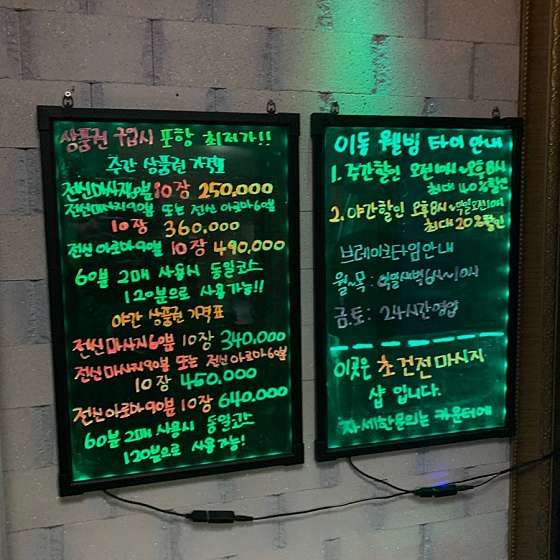 상품권 구입시 포항 최저가!!
주간 상품권 가격표
전신마사지60분 10장 250,000
전신마사지90분 또는 전신 아로마60분
10장 360.000
전신 아로마90분 10장 490,000
60분 2매 사용시 동일코스
120분으로 사용가능!!
야간 상품권 가격표
전신 마사지60분 10장 340,000
전신 마사지90분 또는 전신 아로마60분
10장 450.000
전신 아로마90분 10장 640,000
60분 2매 사용시 동일코스
120분으로 사용가능!
이동 웰빙 타이 안내
1. 주간할인 오전10시~오후8시
최대 40%할인
2. 야간할인 오후8시~익일오전10시
최대 20%할인
브레이크타임안내
월~목 : 익일새벽6시~10시
금.토 : 24시간영업
이곳은 초건전마사지
샵 입니다.
자세한문의는 카운터에